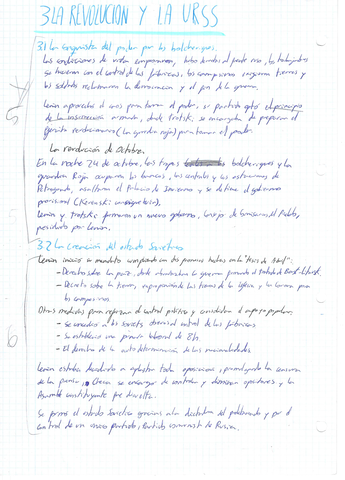 3. LA REVOLUCIÓN Y LA URSS
3.1 La conquista del poder por los bolcheviques.
Las condiciones de vida empeoraron, todos los trabajadores
se hacían con el control de las fábricas, los campesinos tierras y
los soldados reclamaban la democracia y el fin de la guerra.
Lenin aprovechó el caos para tomar el poder, su partido optó el principio
de la insurrección armada, donde Trotski se encargaba de preparar el
Ejército revolucionario (la guardia roja) para tomar el poder.
La revolución de Octubre.
En la noche 24 de octubre, las tropas bolcheviques y la
guardia Roja ocuparon los bancos, las centrales y las estaciones de
Petrogrado, asaltaron el Palacio de Invierno y se detiene el gobierno
provisional (Kerenski consigue huir).
Lenin y Trotski formaron un nuevo gobierno, Consejo de Comisarios del Pueblo,
presidido por Lenin.
3.2 La creación del estado Soviético
Lenin inició su mandato cumpliendo con dos promesas hechas en la "Tesis de Abril":
- Decreto sobre la paz, donde abandonaba la guerra firmando el tratado de Brest-Litovsk.
- Decreto sobre la tierra, expropiación de las tierras de la Iglesia y la Corona para
los campesinos
Otras medidas para reforzar el control político y consolidar el apoyo popular:
- Se concedió a los soviets obreros el control de las fábricas
- Se estableció una jornada laboral de 8h
- El derecho de la autodeterminación de las nacionalidades
Lenin estaba decidido a aplastar toda oposición, promulgando la censura
de la prensa. Checa se encargó de controlar y detener opositores, y la
Asamblea constituyente fue disuelta.
Se formó el estado Soviético gracias a la dictadura del proletariado y por el
control de un único partido, Partido comunista de Rusia.